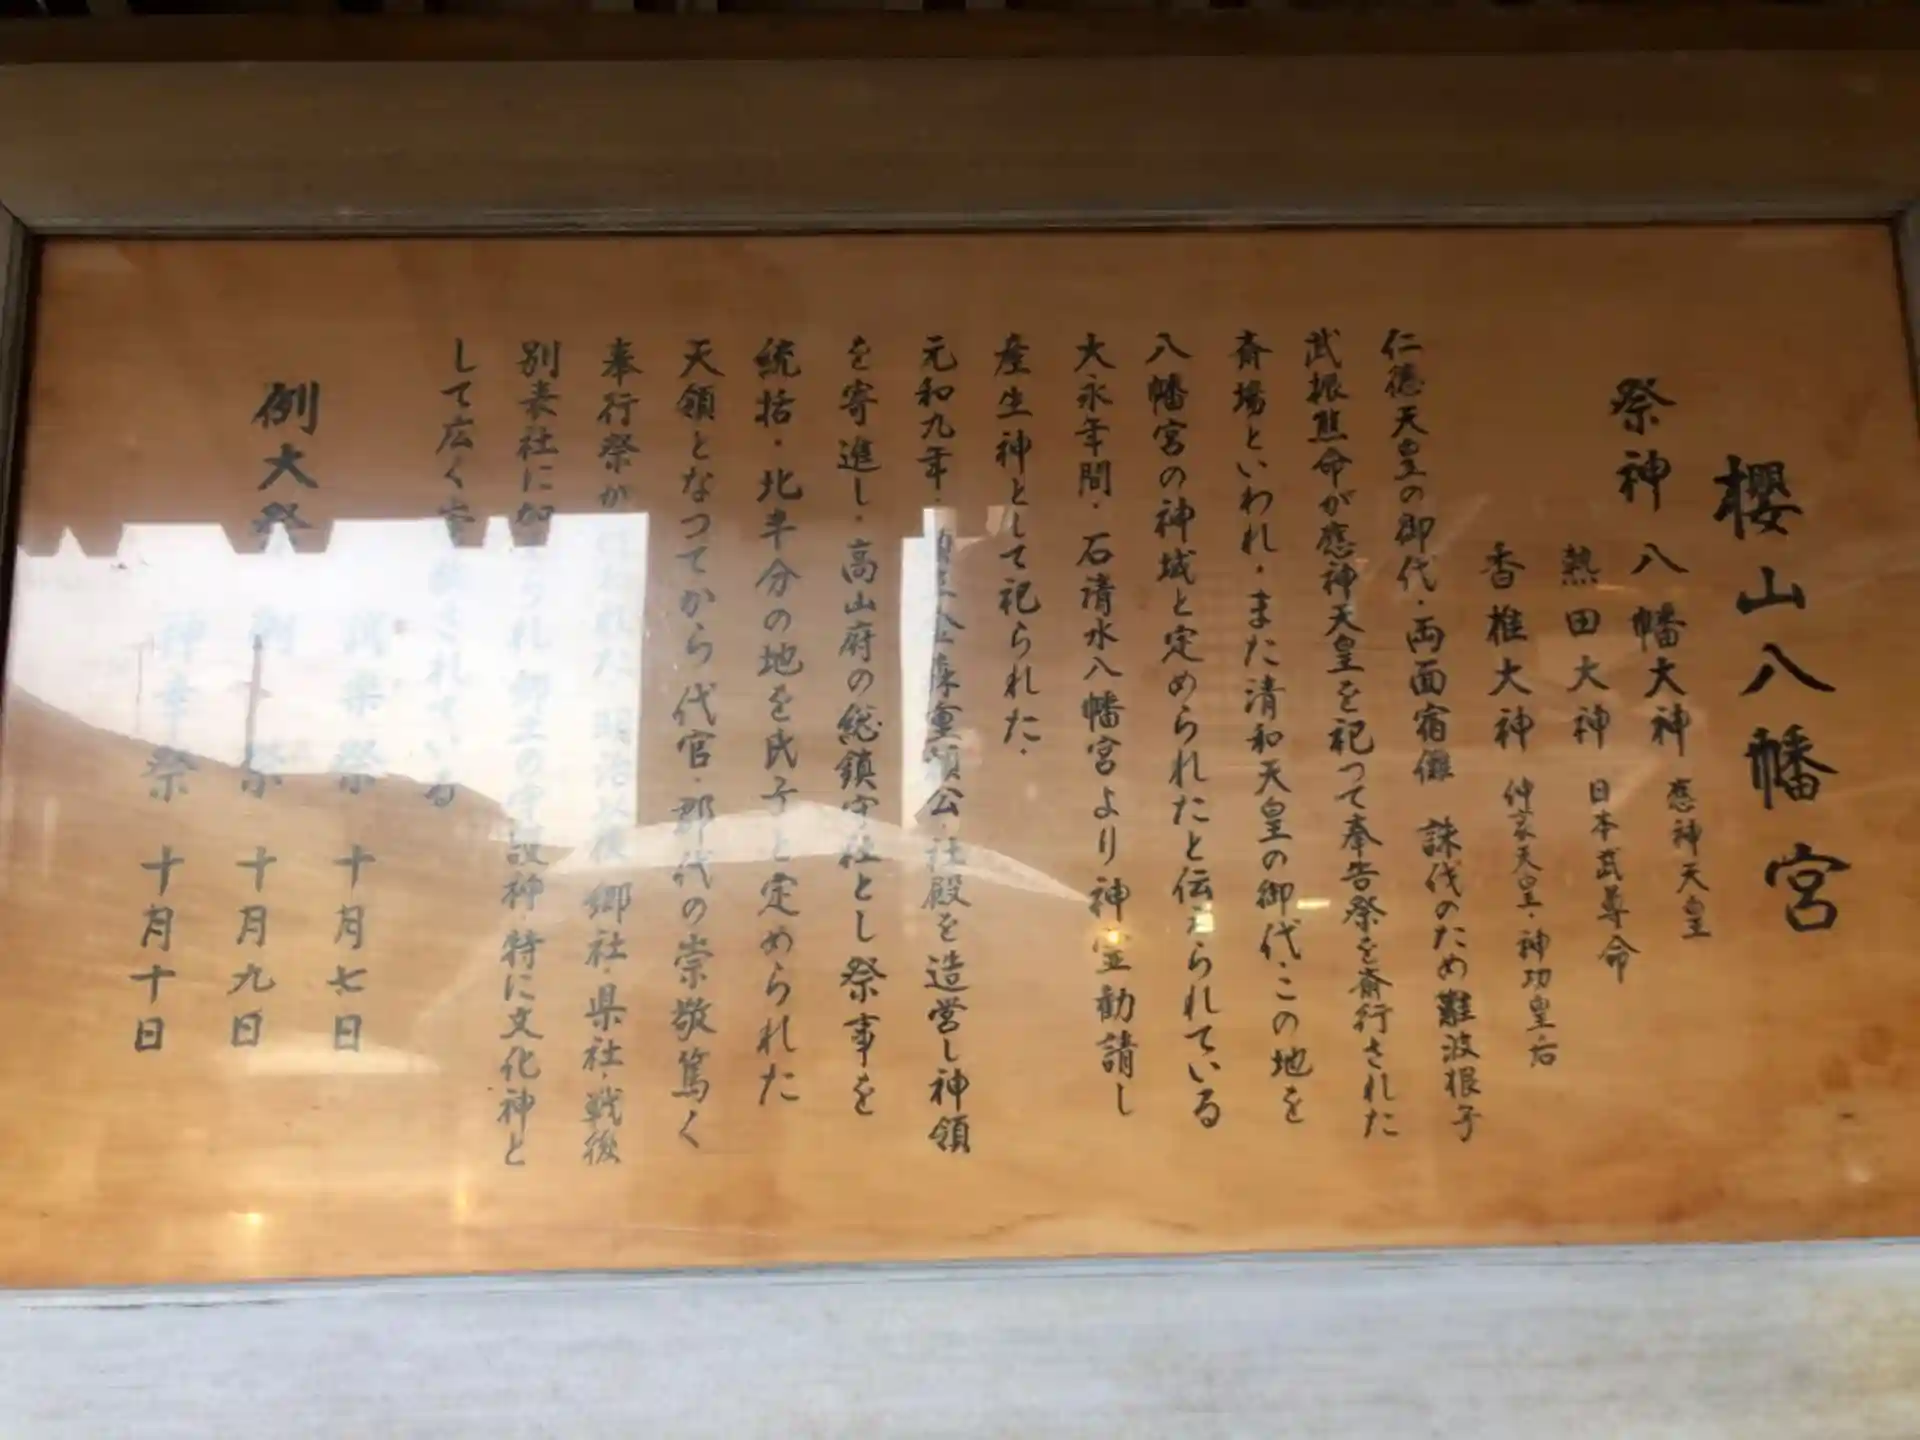 櫻山八幡宮
祭神 八幡大神 應神天皇
熱田大神 日本武尊命
香椎大神 仲哀天皇・神功皇后
仁徳天皇の御代・両面宿儺 誅伐のため難波根子
武振熊命が應神天皇を祀つて奉告祭を斎行された
斎場といわれ・また清和天皇の御代・この地を
八幡宮の神域と定められたと伝えられている
大永年間・石清水八幡宮より神霊勧請し
産生神として祀られた・
元和九年・重頼公・社殿を造営し神領
を寄進し・高山府の総鎮守社とし祭事を
統括・北半分の地を氏子と定められた
天領となつてから代官・郡代の崇敬篤く
奉行祭が行われた 明治以後 郷社・県社・戦後
別表社に加 神・特に文化神と
して広く されている
例大祭
試楽祭 十月七日
例祭 十月九日
神幸祭 十月十日